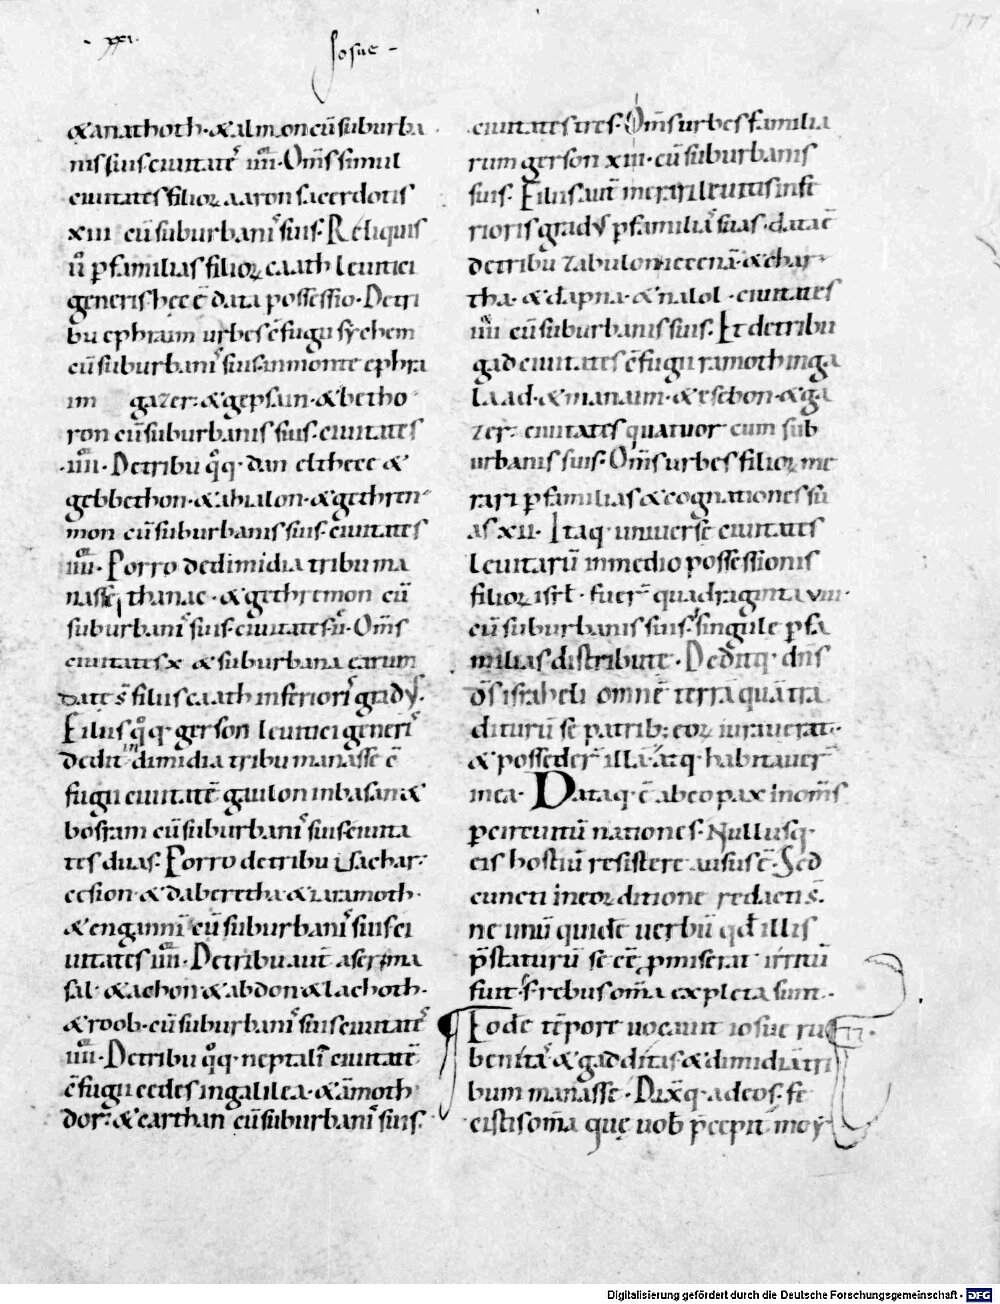 · xxi ·
Josue -
177
&anathoth· &almon cū suburba
nis suis· ciuitatēs iiii· Oms̄ simul
ciuitates filioꝝ aaron sacerdotis
xiii cū suburbanis suis· Reliquis
ū p familias filioꝝ caath leuitici
generis hec ē data possessio· De tri
bu ephraim urbes cfugii sychem
cū suburbanis suis in monte ephra
im gazer· & gepsaim· & betho
ron cū suburbanis suis· ciuitates
·iiii· De tribu qq· dan elthece &
gebbethon· & ahialon· & gethrem
mon cū suburbanis suis· ciuitates
iiii· Porro de dimidia tribu ma
nasse thanac· & gethremon cū
suburbanis suis· ciuitates ii· Oms̄
ciuitates x & suburbana earum
date s̄ filiis caath inferioris gradus·
Filiis qq· gerson leuitici generis
dedit in dimidia tribu manasse c̄
fugii ciuitates gaulon in basan &
bosram cū suburbanis suis ciuita
tes duas· Porro de tribu isachar·
cesion· & daberetha & iaramoth·
& engannī cū suburbanis suis ci
uitates iiii· De tribu aut̄ aser ma
sal· & achon & abdon & lachoth·
& roob· cū suburbanis suis ciuitatēs
iiii· De tribu qq· neptali ciuitatēs
cfugii cedes in galilea· & āmoth
dor· & carthan cū suburbanis suis·
ciuitates tres· Oms̄ urbes familia
rum gerson xiii· cū suburbanis
suis· Filiis aut̄ merari leuitis infe
rioris gradus p familiās suas· data ē
de tribu zabulon iecenā· & char·
tha· & dapna· & nalol· ciuitates
iiii cū suburbanis suis· Et de tribu
gad ciuitates cfugii ramoth in ga
laad· & manaim· & esebon· & ga
zer· ciuitates quatuor cum sub
urbanis suis· Oms̄ urbes filioꝝ me
rari p familias & cognationes su
as xii· Itaq· uniuerse ciuitates
leuitarū in medio possessionis
filioꝝ isrl· fuer̄ quadraginta viii·
cū suburbanis suis· singule p fa
milias distribute· Deditq· dn̄s
ds̄ israheli omnē terrā quā tra
diturū se patrib; eoꝝ iurauerat·
& posseder̄ illā· atq· habitauer̄
in ea· Dataq· ē ab eo pax in oms̄
p circuitū nationes· Nullusq·
eis hostiū resistere ausus ē· Sed
cuncti in eoꝝ ditione redacti s̄·
ne unū quidē uerbū qd illis
p̄staturū se ēē pmiserat irritū
fuit· s; rebus om̄a expleta sunt·
Eodē tēpore uocauit iosue ru
benitas & gadditas & dimidiā tri
bum manasse· Dixitq· ad eos· fe
cistis om̄a que uob p̄cepit moy
Digitalisierung gefördert durch die Deutsche Forschungsgemeinschaft - DFG